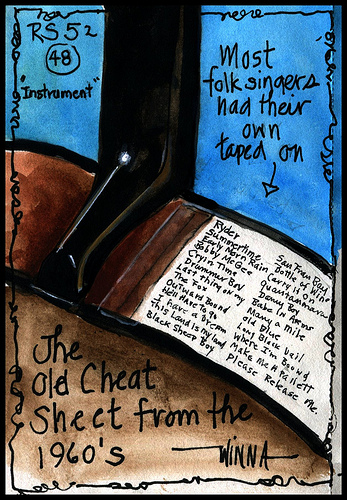 RS52
48
"Instrument"
Most
folksingers
had their
own
taped on
Ryder
Summertime
Early Morn Rain
Bobby McGee
Cryin Time
Drummer Boy
Last thing on my
The Fox
Outward Bound
Hell Have to go
I have a Dream
This Land is my land
Black Sheep Boy
San Fran Bay
Bottle of Wine
Carry it on
Danny Boy
Babe in Arms
Many a mile
Old Blue
Long Black Veil
Where I'm Bound
Make Me A Pallett
Please Release Me
The
Old Cheat
Sheet from the
1960's
WINNA